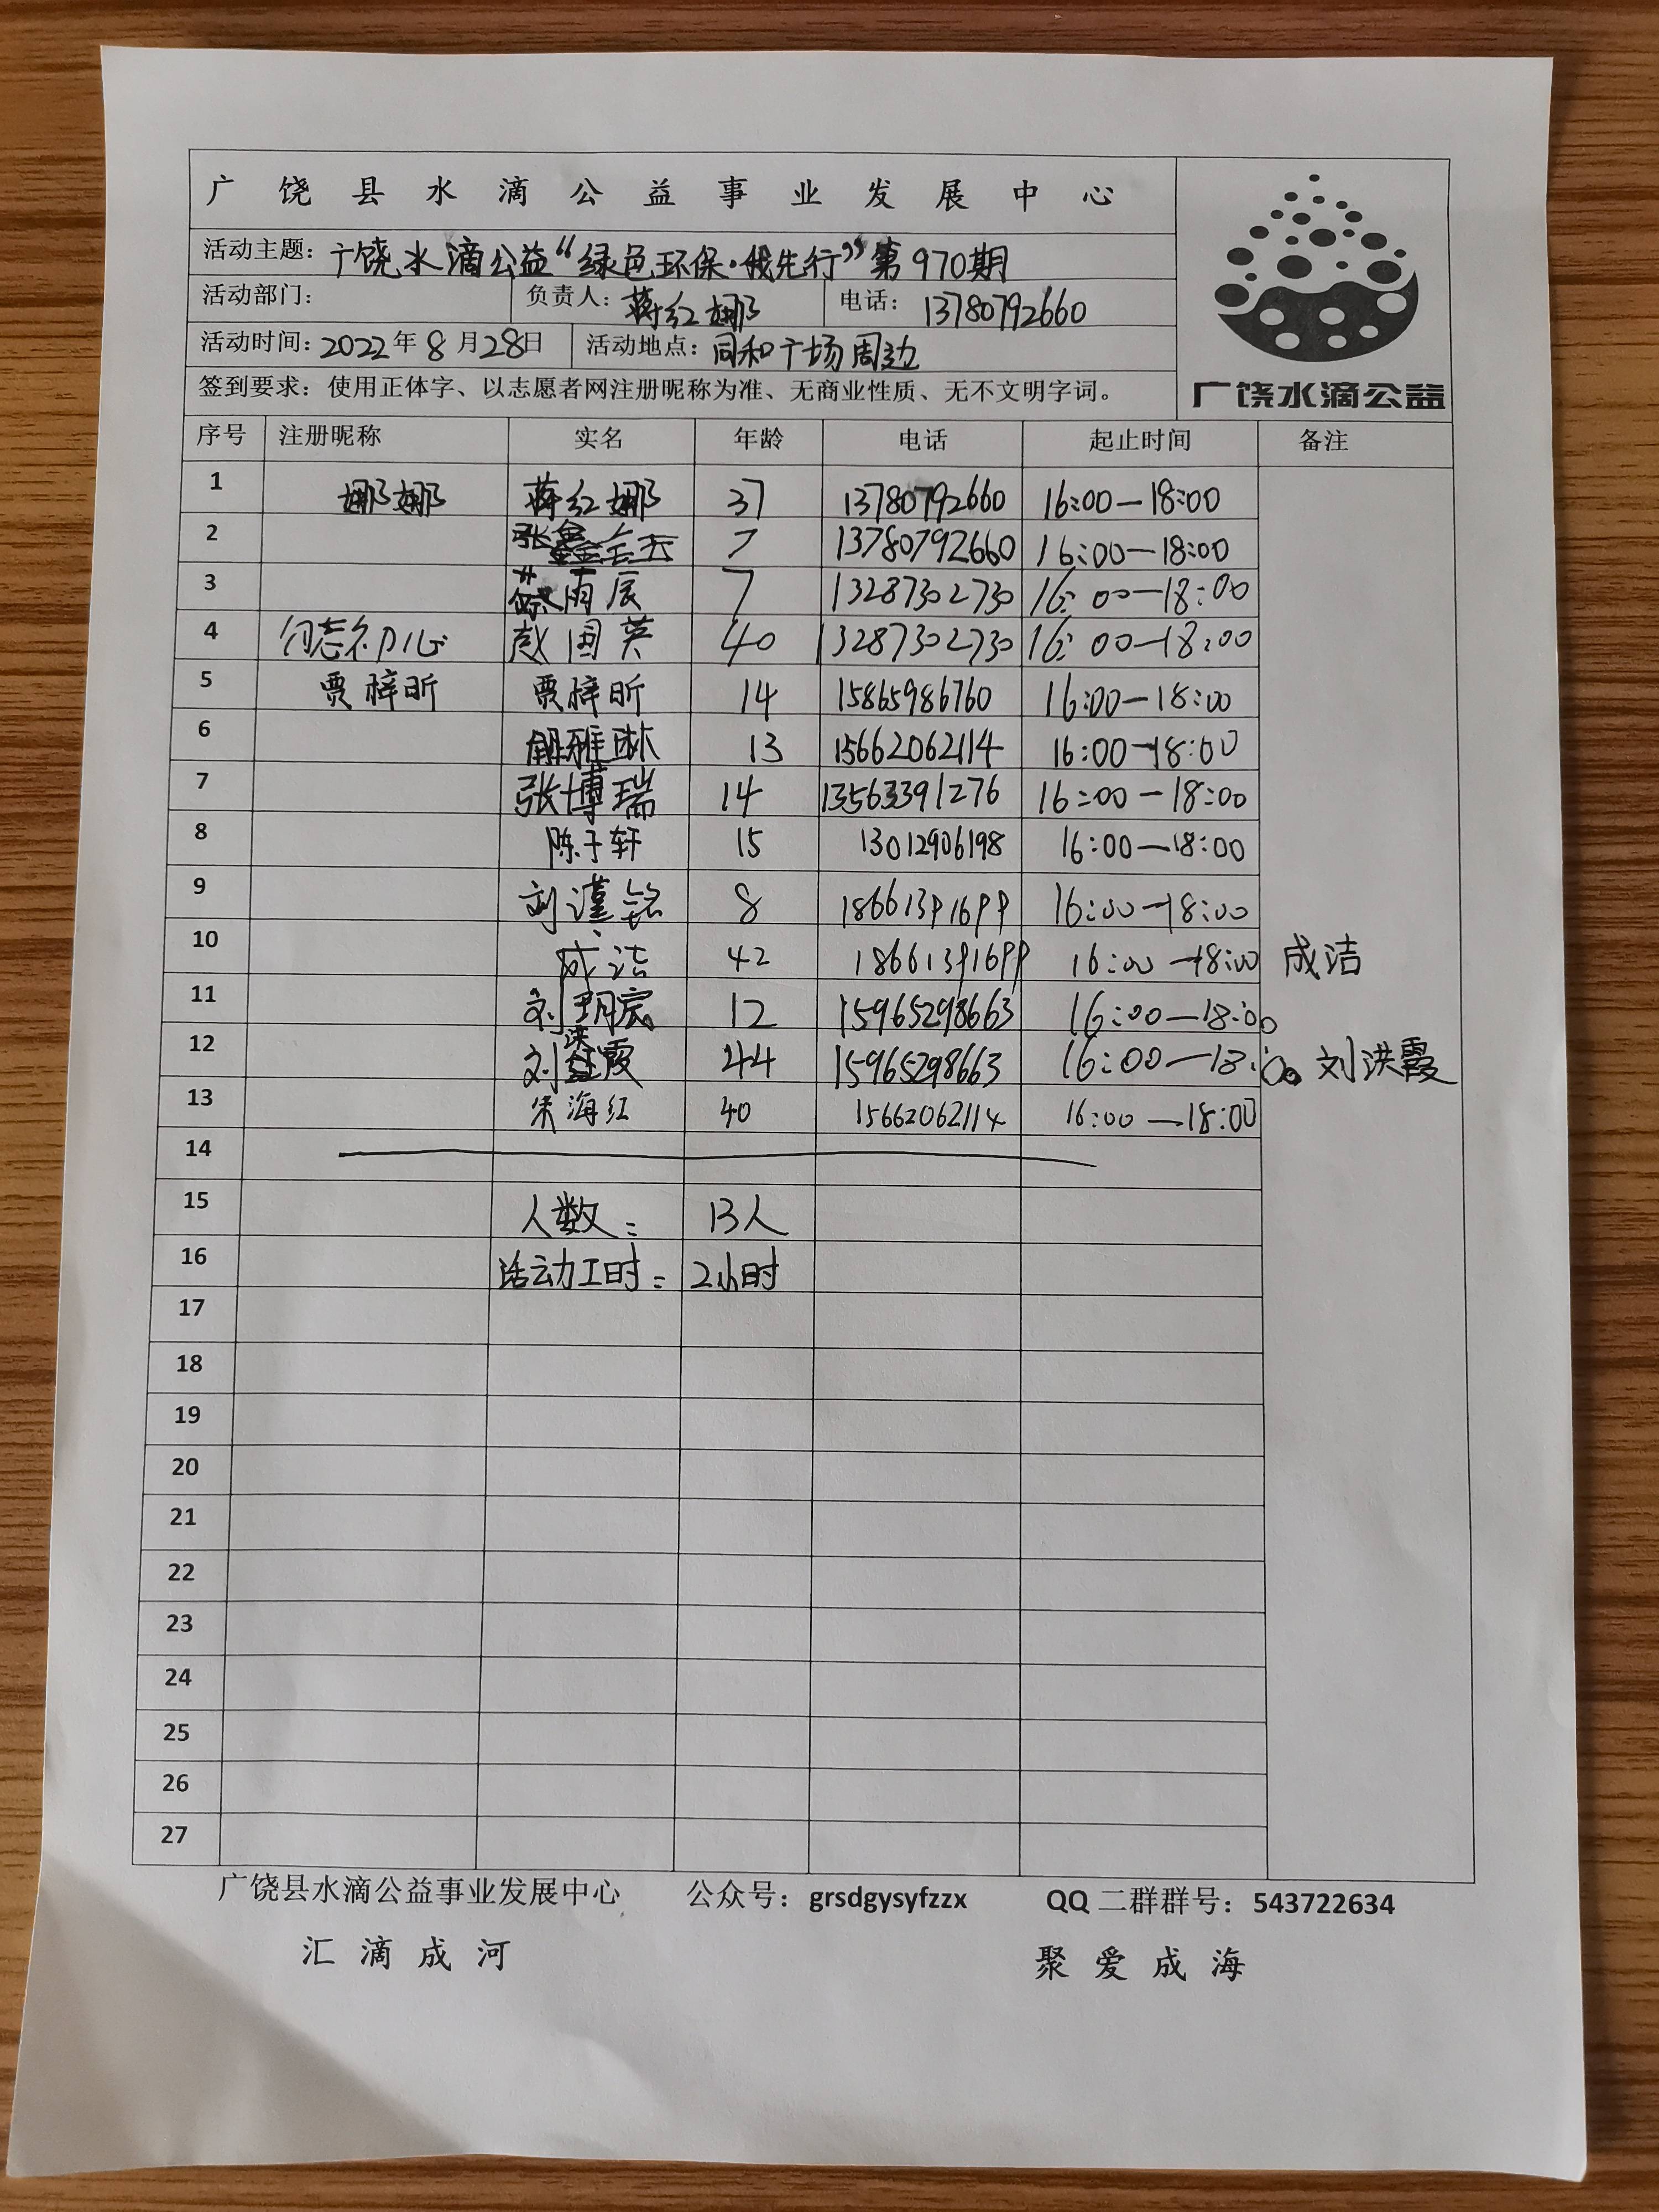 广饶县水滴公益事业发展中心
活动主题：广饶水滴公益“绿色环保·我先行”第970期
活动部门： 负责人：蒋红娜 电话：13780792660
活动时间：2022年8月28日 活动地点：同和广场周边
签到要求：使用正体字、以志愿者网注册昵称为准、无商业性质、无不文明字词。
广饶水滴公益
序号 注册昵称 实名 年龄 电话 起止时间 备注
1 娜娜 蒋红娜 37 13780792660 16:00—18:00
2 张鑫 7 13780792660 16:00—18:00
3 雨辰 7 13287302730 16:00—18:00
4 勿忘初心 赵国英 40 13287302730 16:00—18:00
5 贾梓昕 贾梓昕 14 15865986760 16:00—18:00
6 雅琳 13 15662062114 16:00—18:00
7 张博瑞 14 13563391276 16:00—18:00
8 陈子轩 15 13012906198 16:00—18:00
9 刘谨铭 8 18661391699 16:00—18:00
10 成洁 42 18661391699 16:00—18:00 成洁
11 刘玥宸 12 15965298663 16:00—18:00
12 刘洪霞 44 15965298663 16:00—18:00 刘洪霞
13 朱海红 40 15662062114 16:00—18:00
14
15 人数： 13人
16 活动工时： 2小时
17
18
19
20
21
22
23
24
25
26
27
广饶县水滴公益事业发展中心 公众号：grsdgysyfzzx QQ 二群群号：543722634
汇滴成河 聚爱成海